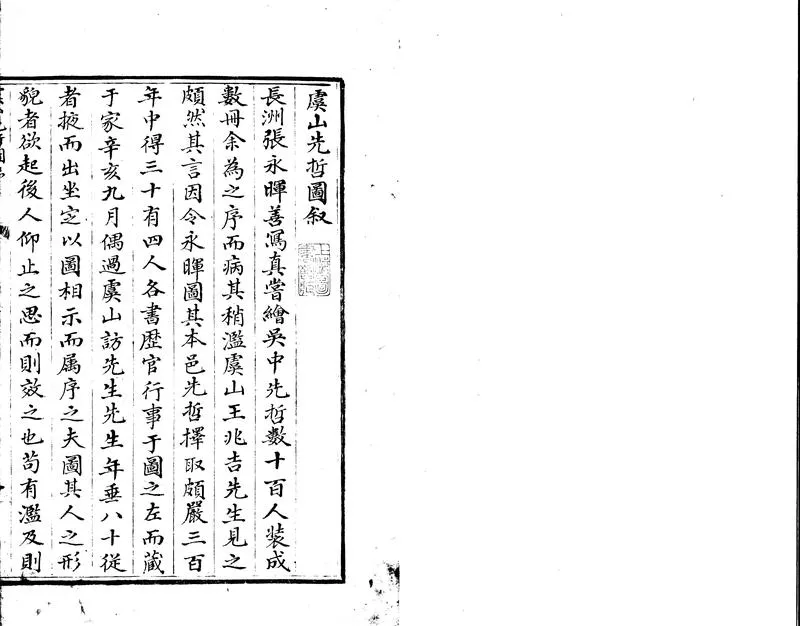 虞山先哲圖叙
長洲張永暉善寫真嘗繪吳中先哲數十百人裝成
數冊余為之序而病其稍濫虞山王兆吉先生見之
頗然其言因令永暉圖其本邑先哲擇取頗嚴三百
年中得三十有四人各書歷官行事于圖之左而藏
于家辛亥九月偶過虞山訪先生先生年垂八十從
者掖而出坐定以圖相示而属序之夫圖其人之形
貌者欲起後人仰止之思而則效之也苟有濫及則